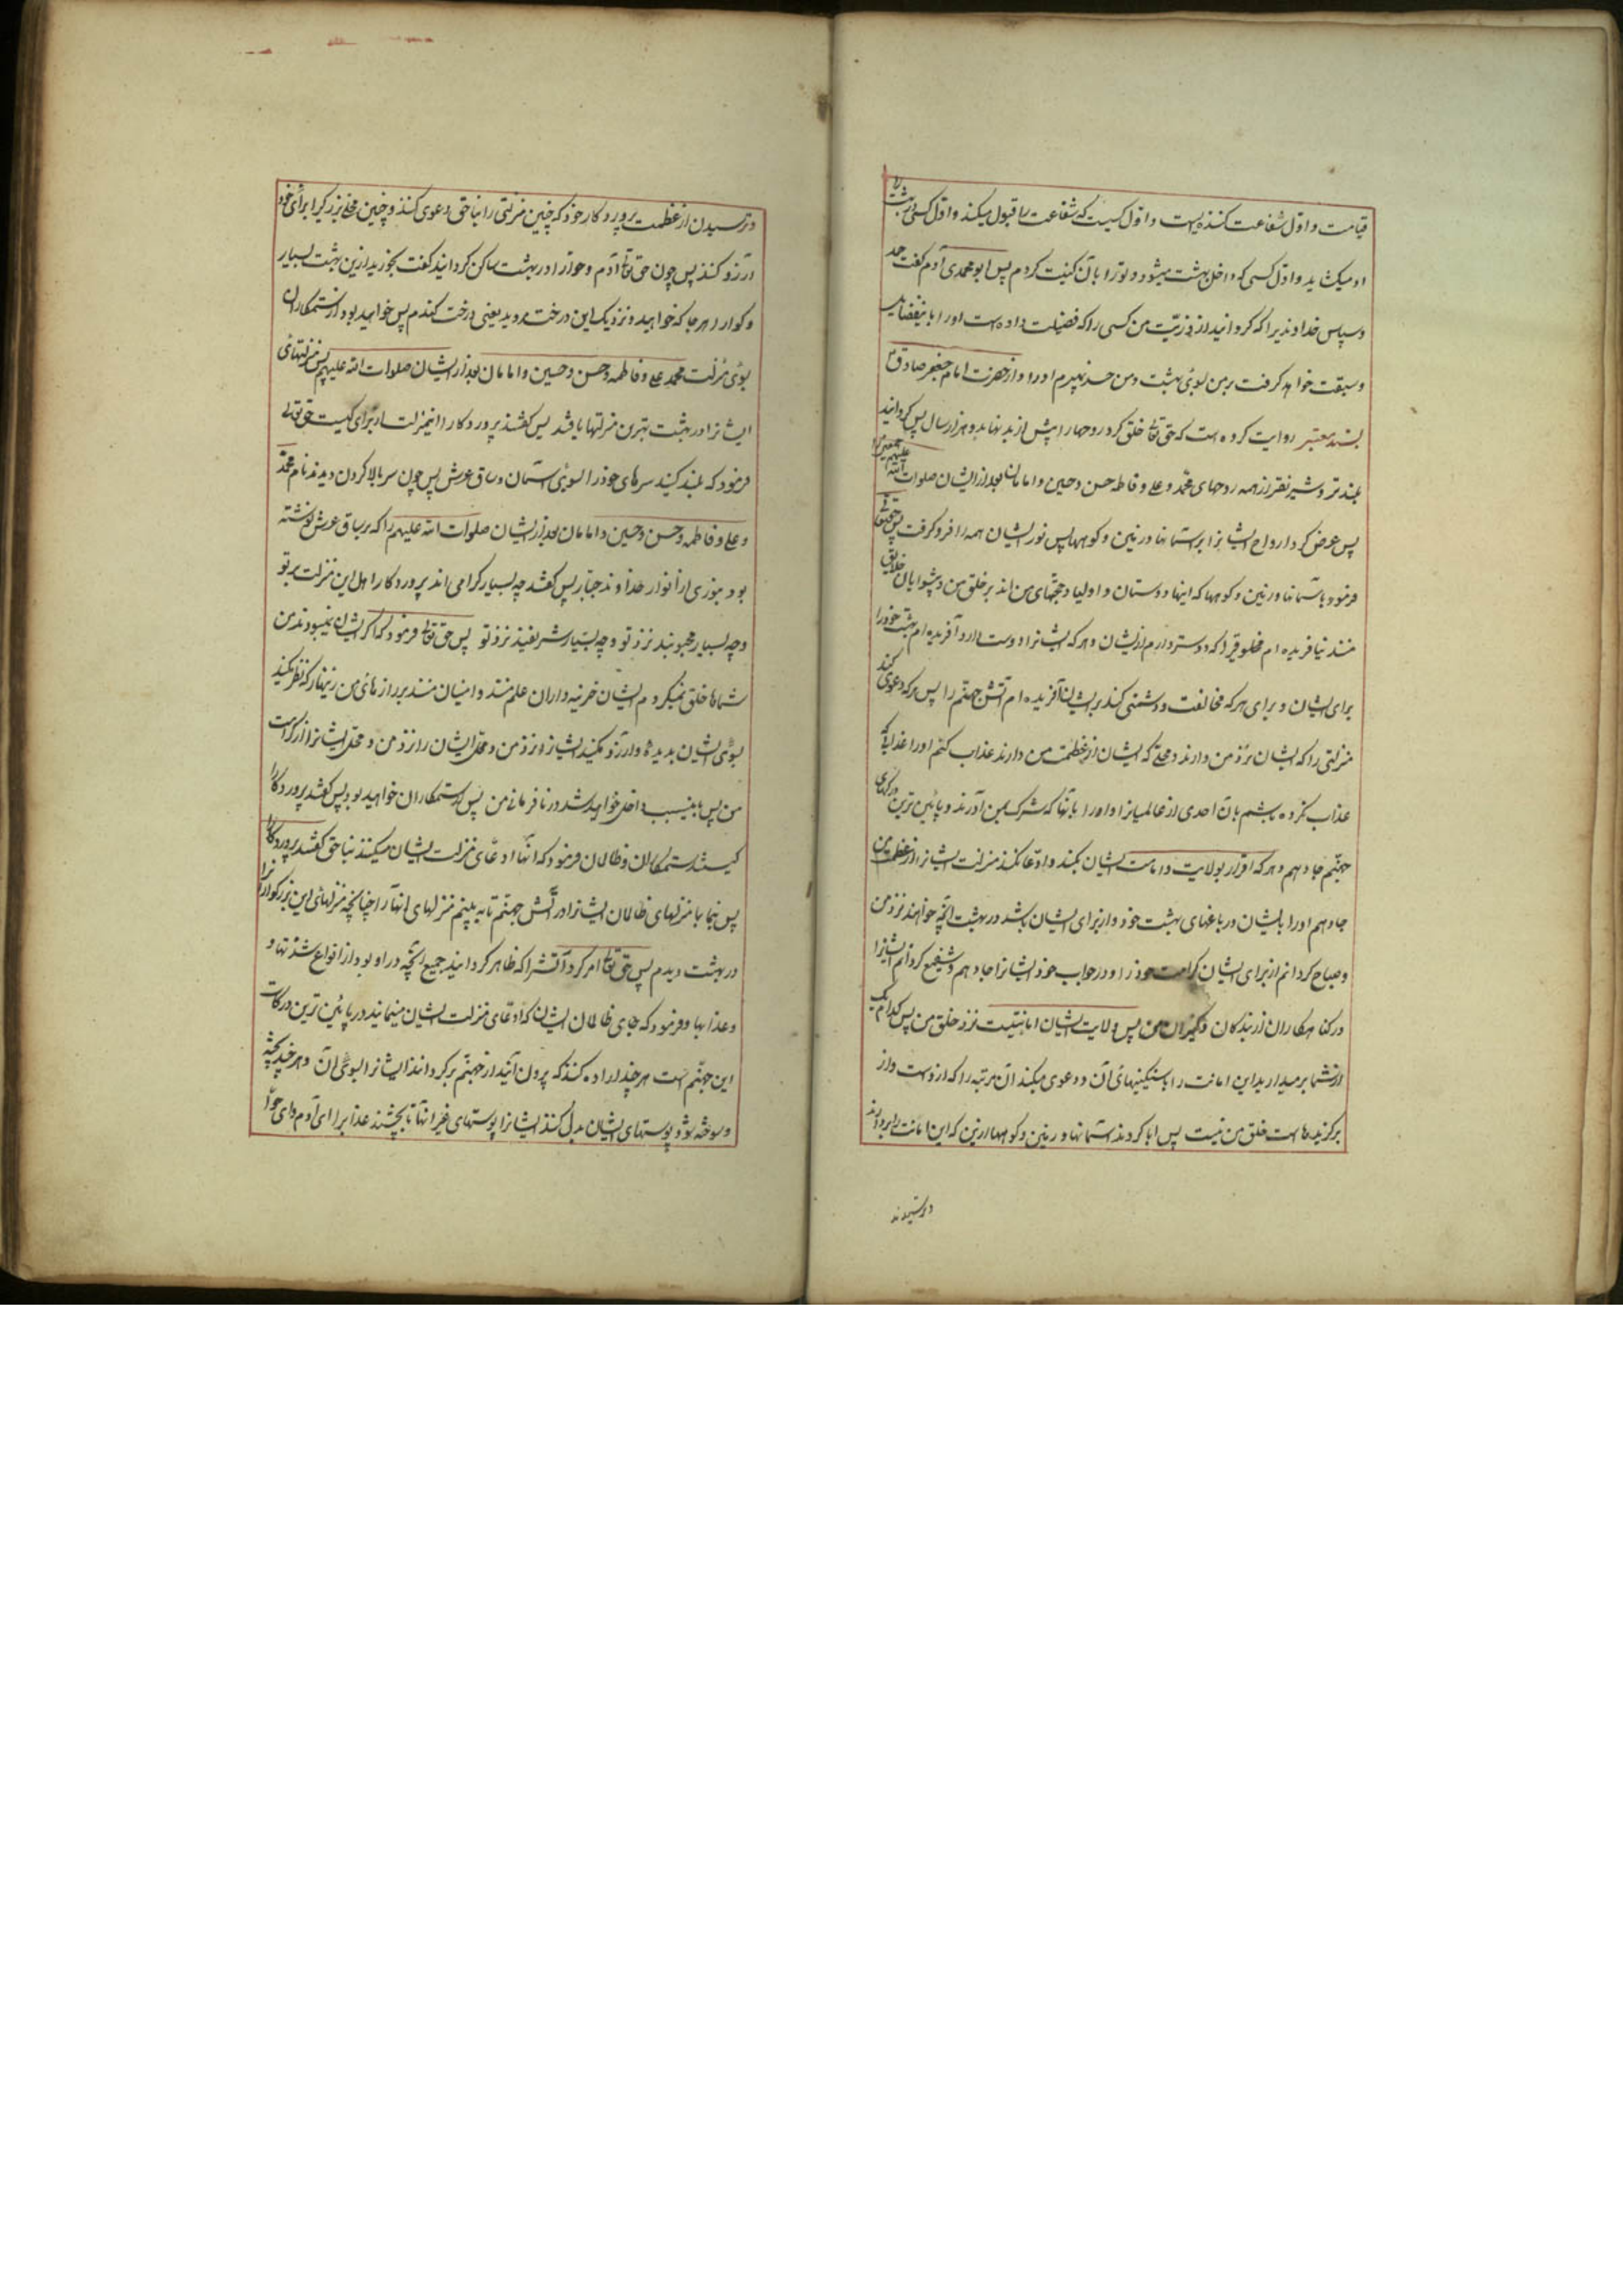 قیامت و اول شفاعت کننده است و اول کسیست که شفاعت را قبول میکند و اول کسی در بهشت را
او میکشاید و اول کسی که داخل بهشت میشود و تو را بآن کنیت کردم پس ابو محمدی آدم گفت حمد
و سپاس خداوندیرا که گردانید از ذریت من کسی را که فضیلت داده است او را باین فضایل
و سبقت خواهد گرفت بر من بسوی بهشت و من حسد نمیبرم او را و از حضرت امام جعفر صادق ع
بسند معتبر روایت کرده است که حق تعالی خلق کرد روحها را پیش از بدنها بدو هزار سال پس گردانید
بلند تر و شریفتر از همه روحهای محمد و علی و فاطمه حسن و حسین و امامان بعد از ایشان صلوات الله علیهم اجمعین را
پس عرض کرد ارواح ایشانرا بر آسمانها و زمین و کوهها پس نور ایشان همه را فرو گرفت پس حقتعالی
فرمود با آسمانها و زمین و کوهها که اینها دوستان و اولیا و حجتهای من اند بر خلق من و پیشوایان خلایق
منند نیافریده ام مخلوقیرا که دوستر دارم از ایشان و هر که ایشانرا دوست دارد آفریده ام بهشت خود را
برای ایشان و برای هر که مخالفت و دشمنی کند بر ایشان آفریده ام آتش جهنم را پس هر که دعوی کند
منزلتی را که ایشان نزد من دارند و محلی که ایشان از عظمت من دارند عذاب کنم او را عذابی که
عذاب نکرده باشم بآن احدی از عالمیانرا و او را با آنها که شرک بمن آورند در پائین ترین درکهای
جهنم جا دهم و هر که اقرار بولایت و امامت ایشان بکند و ادعا نکند منزلت ایشانرا از عظمت من
جا دهم او را با ایشان در باغهای بهشت خود و از برای ایشان باشد در بهشت آنچه خواهند نزد من
و مباح گردانم از برای ایشان کرامت خود را و در جواب خود ایشانرا جا دهم و شفیع گردانم ایشانرا
در گناهکاران از بندگان و کنیزان من پس ولایت ایشان امانتیست نزد خلق من پس کدام یک
از شما بر میدارید این امانت را با سنگینیهای آن و دعوی میکند آن مرتبه را که از اوست و از
برگزیدهاست خلق من نیست پس ابا کردند آسمانها و زمین و کوهها از این که این امانت را بردارند
و ترسیدند
و ترسیدن از عظمت پروردگار خود که چنین منزلتی را بناحق دعوی کنند و چنین محل بزرگیرا برای خود
آرزو کنند پس چون حق تعالی آدم و حوا را در بهشت ساکن گردانید گفت بخورید از این بهشت بسیار
و گوارا هر جا که خواهید و نزدیک این درخت مروید یعنی درخت گندم پس خواهید بود از ستمکاران
بسوی منزلت محمد و علی و فاطمه و حسن و حسین و امامان بعد از ایشان صلوات الله علیهم پس منزلتهای
ایشانرا در بهشت بهترین منزلتها یافتند پس گفتند پروردگارا این منزلت از برای کیست حق تعالی
فرمود که بلند کنید سرهای خود را بسوی آسمان و ساق عرش پس چون سر بالا کردن دیدند نام محمد
و علی و فاطمه و حسن و حسین و امامان بعد از ایشان صلوات الله علیهم را که بر ساق عرش نوشته
بود بنوری از انوار خداوند جبار پس گفتند چه بسیار گرامی اند پروردگارا اهل این منزلت بر تو
و چه بسیار محبوبند نزد تو و چه بسیار شریفند نزد تو پس حق تعالی فرمود که اگر ایشان نمیبودند من
شماها خلق نمیکردم ایشان خزینه داران علم منند و امینان منند بر رازهای من زینهار که نظر نکنید
بسوی ایشان بدیده و آرزو نکنید ایشانرا نزد من و محل ایشان را نزد من و محل ایشانرا از کرامت
من پس باینسبب داخل خواهید شد در نافرمانی من پس از ستمکاران خواهید بود پس گفتند پروردگارا
کیستند ستمکاران و ظالمان فرمود که آنها ادعای منزلت ایشان میکنند بناحق گفتند پروردگارا
پس بنما بما منزلهای ظالمان ایشانرا در آتش جهنم تا به بینم منزلهای آنها را چنانچه منزلهای این بزرگوارانرا
در بهشت دیدم پس حق تعالی امر کرد آتشرا که ظاهر گردانید جمیع آنچه در او بود از انواع شدتها و
و عذابها و فرمود که جای ظالمان ایشان که ادعای منزلت ایشان مینمایند در پائین ترین درکات
این جهنم است هر چند اراده کنند که بیرون آیند از جهنم بر گردانند ایشانرا بسوی آن و هر چند پخته
و سوخته شود پوستهای ایشان بدل کنند ایشانرا پوستهای غیر آنها تا بچشند عذابرا ای آدم و ای حوا